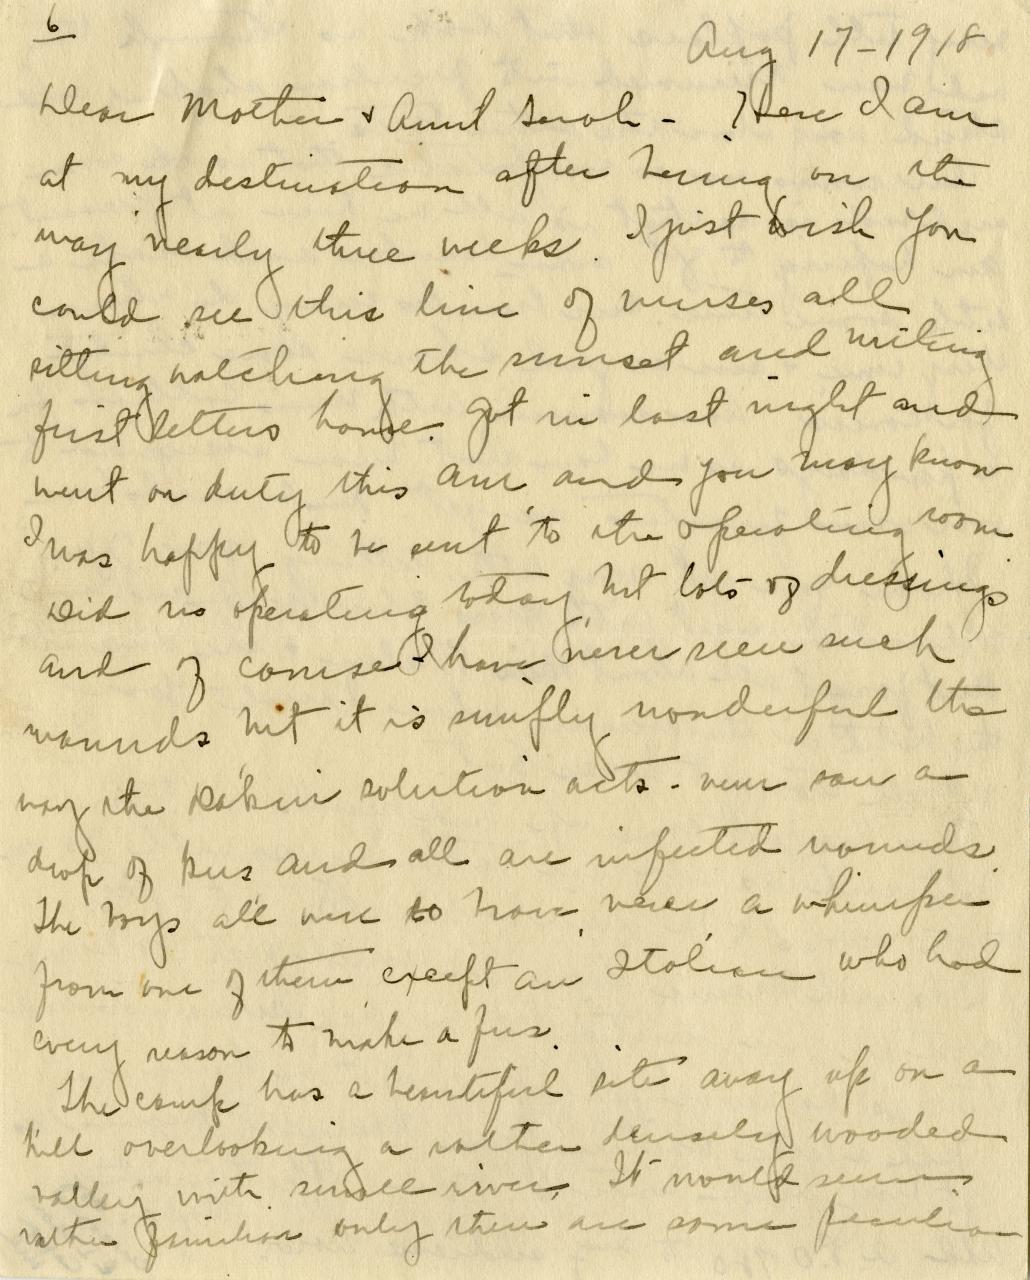 6
Aug 17-1918
Dear Mother & Aunt Sarah - Here I am
at my destination after being on the
way nearly three weeks. I just wish you
could see this line of nurses all
sitting watching the sunset and writing
first letters home. Got in last night and
went on duty this am and you may know
I was happy to be sent to the operating room
Did no operating today but lots of dressings
and of course I have never seen such
wounds but it is simply wonderful the
way the Dakin solution acts - never saw a
drop of pus and all are infected wounds.
The boys all were so brave never a whimper
from one of them except an Italian who had
every reason to make a fuss.
The camp has a beautiful site away up on a
hill overlooking a rather densely wooded
valley with small river. It would seem
rather familiar only there are some peculiar